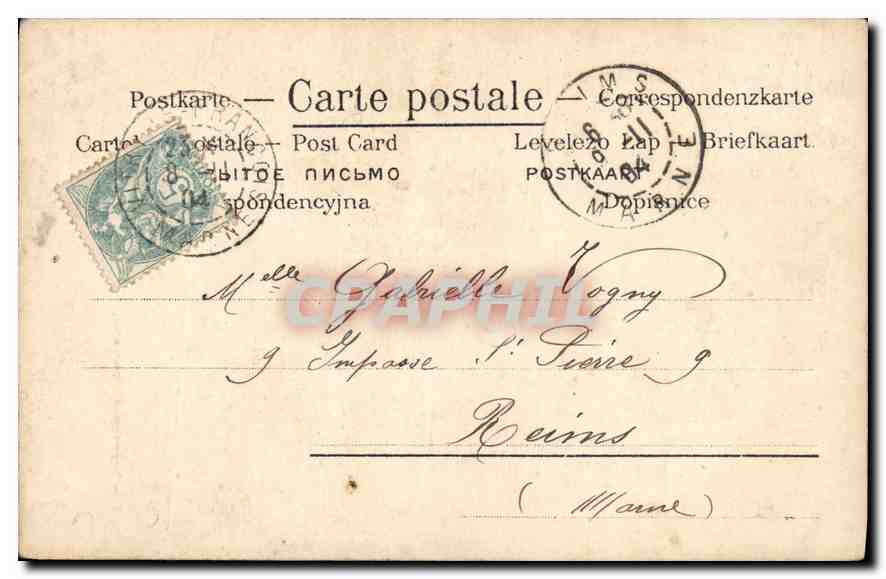 Postkarte — Carte postale — Correspondenzkarte
Carte postale — Post Card Levelezo Lap — Briefkaart
ЫТОЕ ПИСЬМО POSTKAART
spondencyjna Dopisnice
IMS
6 11
04
MARNE
04
CPAPHIL
Melle Gabrielle Vogny
9 Impasse St Pierre 9
Reims
(Marne)